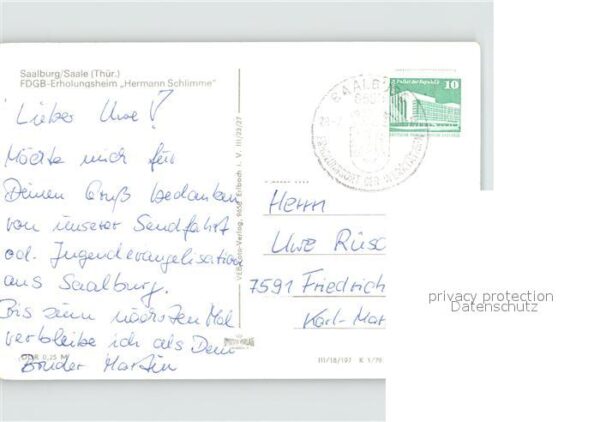 Saalburg/Saale (Thür.)
FDGB-Erholungsheim „Hermann Schlimme"
Lieber Uwe!
Möchte mich für
Deinen Gruß bedanken
von unserer Sendfahrt
od. Jugendevangelisation
aus Saalburg.
Bis zum nächsten Mal
verbleibe ich als Dein
Bruder Martin
(DDR 0,25 M)
VEB Verlag, 9652 Erlbach i. V. III/23/27
SAALBURG
ERHOLUNGSORT DER WERKTÄTIGEN
Palast der Republik
10
Herrn
Uwe Rüsc
7591 Friedrich
Karl-Mar
III/18/197 K 1/79
privacy protection
Datenschutz